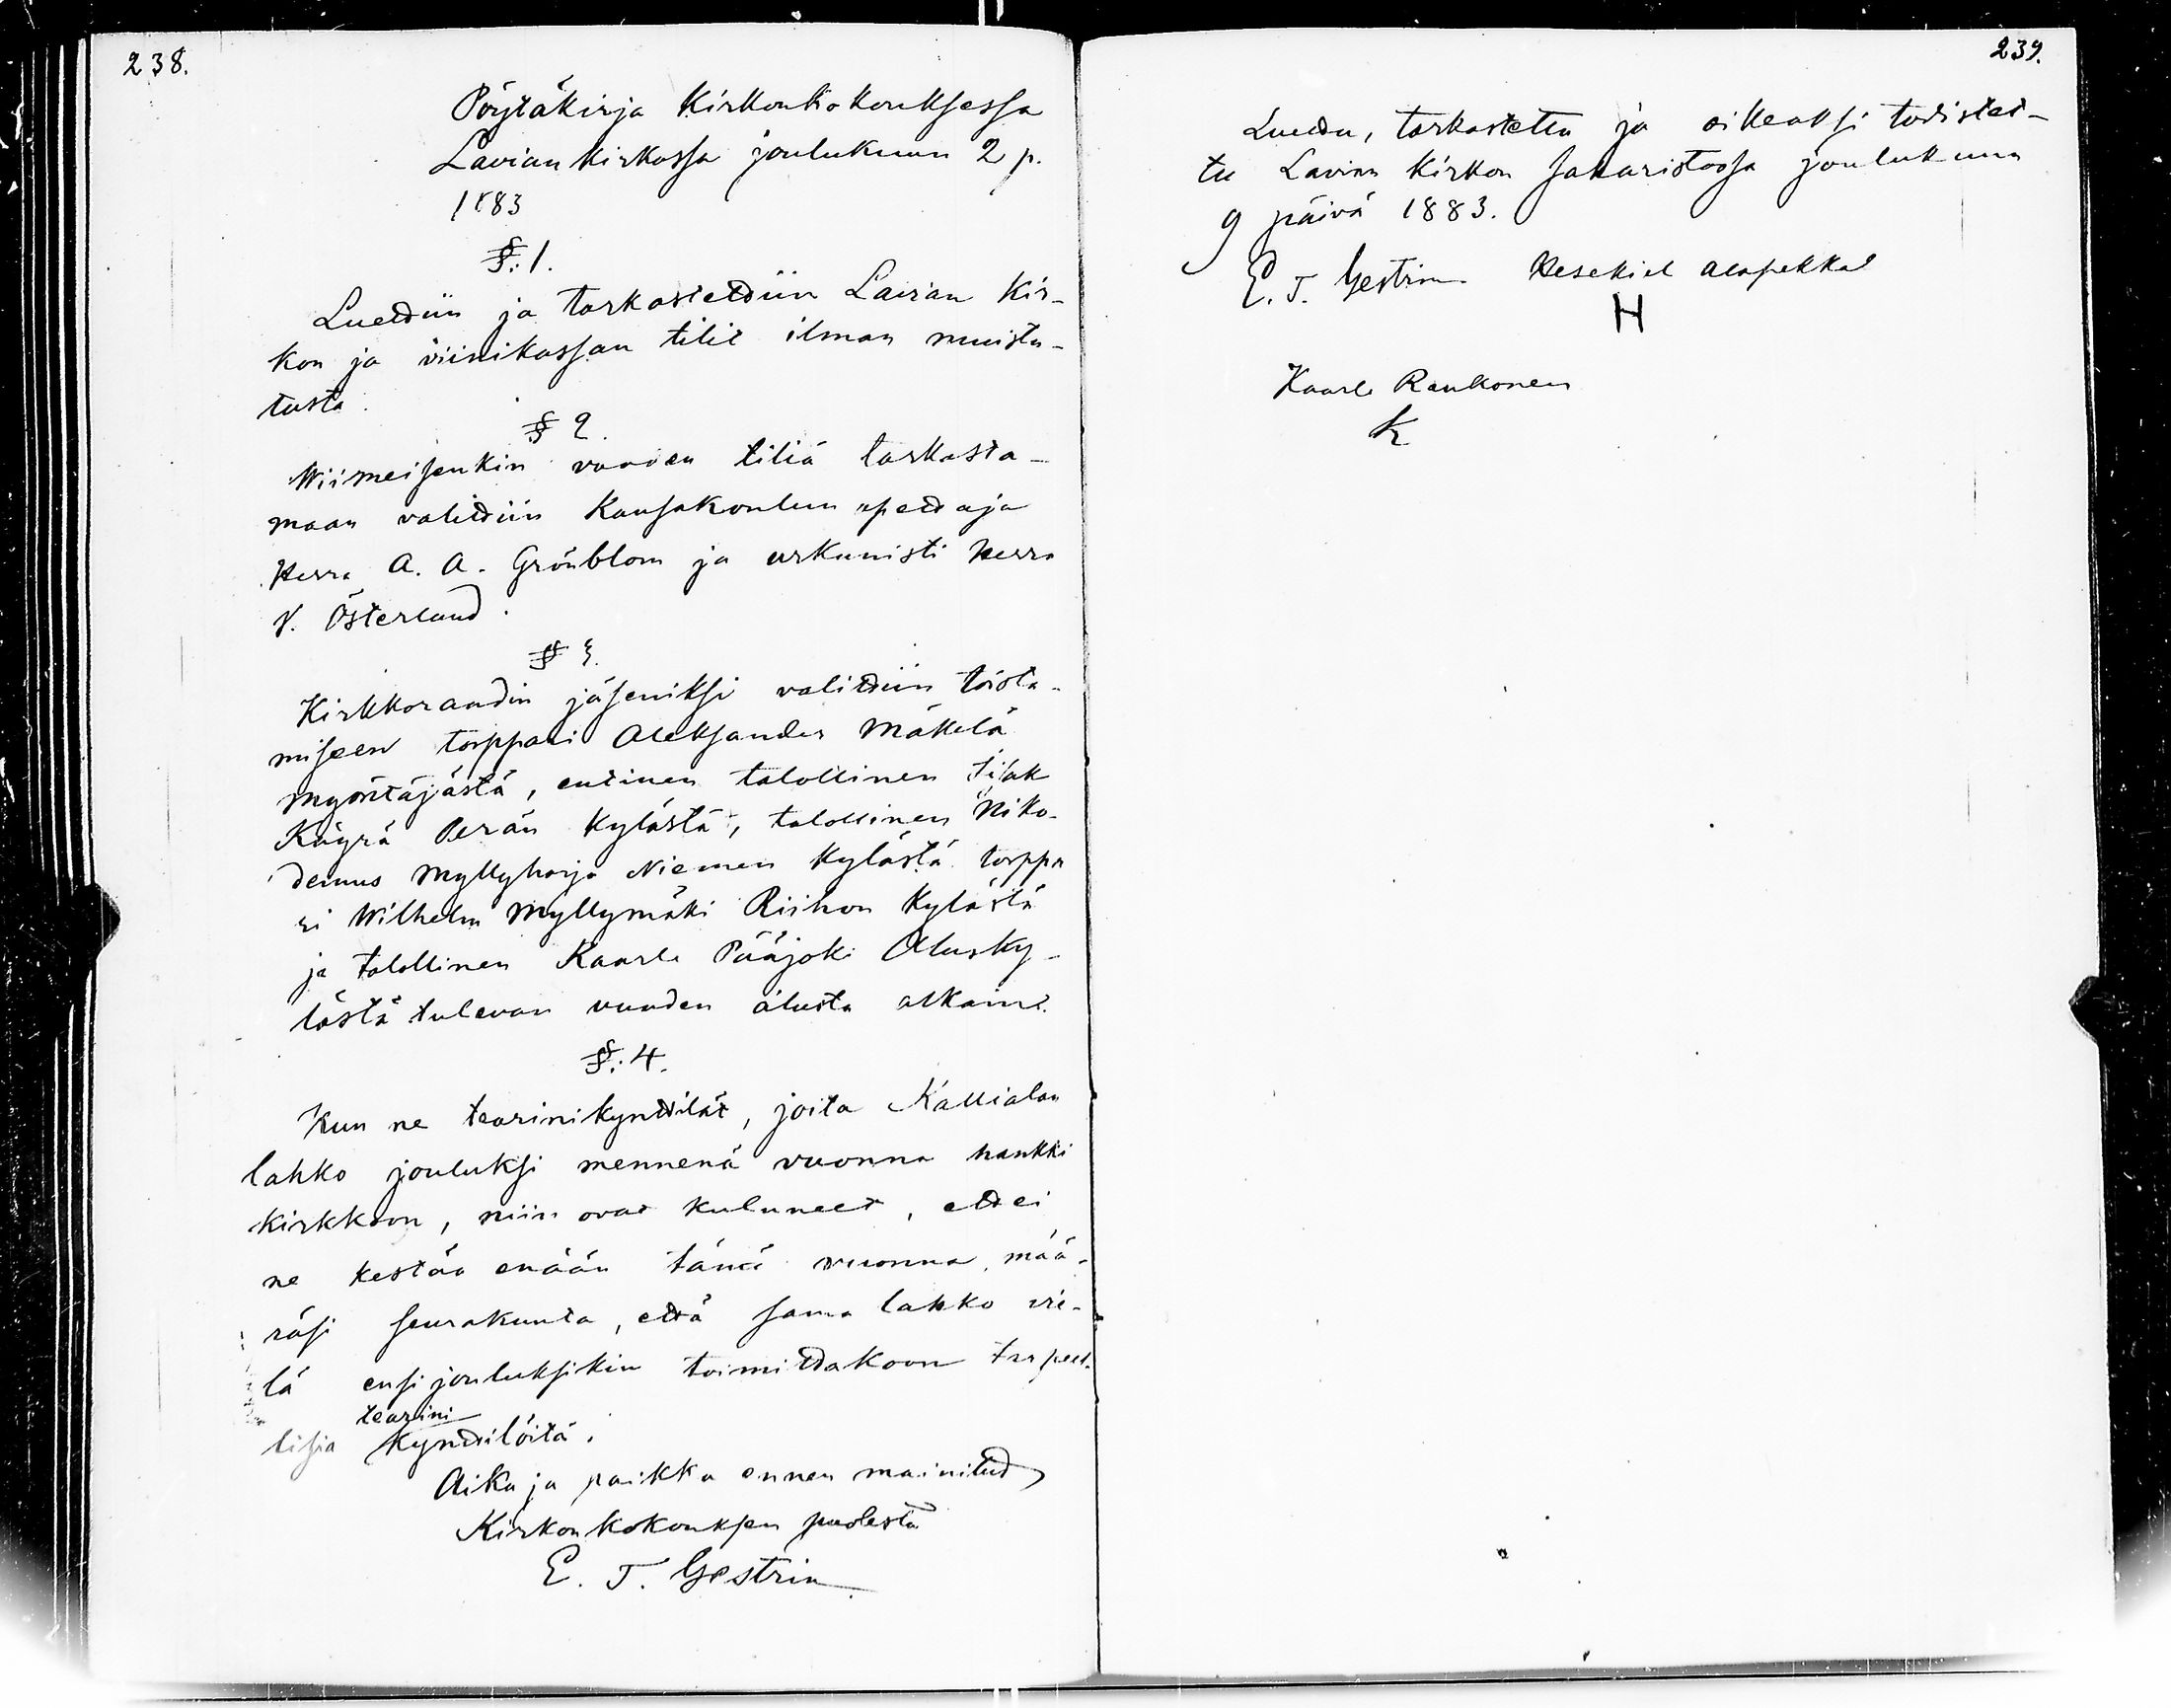 238.
Pöytäkirja Kirkonkokouksessa
Lavian kirkossa joulukuun 2 p.
1883
§: 1.
Luettiin ja tarkastettiin Lavian Kir-
kon ja viinikassan tilit ilman muistu-
tusta.
§ 2.
Wiimeisenkin vuoden tiliä tarkasta-
maan valittiin Kansakoulun opettaja
Herra A. A. Grönblom ja urkunisti herra
V. Österlund.
§ 3.
Kirkkoraadin jäseniksi valittiin toista-
miseen torppari Aleksander Mäkelä
Myöntäjästä, entinen talollinen Isak
Käyrä Perän Kylästä, talollinen Niko-
demus Myllyharja Niemen Kylästä torppa
ri Wilhelm Myllymäki Riihon Kylästä
ja talollinen Kaarle Pääjoki Alusky-
lästä tulevan vuoden alusta alkain.
§: 4.
Kun ne tearinikynttilät, joita Kallialan
lahko jouluksi mennenä vuonna hankki
Kirkkoon, niin ovat kuluneet, ettei
ne kestää enään tänä vuonna, mää-
räsi seurakunta, että sama lahko vie-
lä ensi jouluksikin toimittakoon tarpeel-
tearini
lisia Kynttilöitä.
Aika ja paikka ennen mainitud
Kirkonkokouksen puolesta
E. J. Gestrin
239.
Luettu, tarkastettu ja oikeaksi todistet-
tu Lavian Kirkon Sakaristossa joulukuun
9 päivä 1883.
E. J. Gestrin Hesekiel Alapekkal
H
Kaarle Raukonen
K